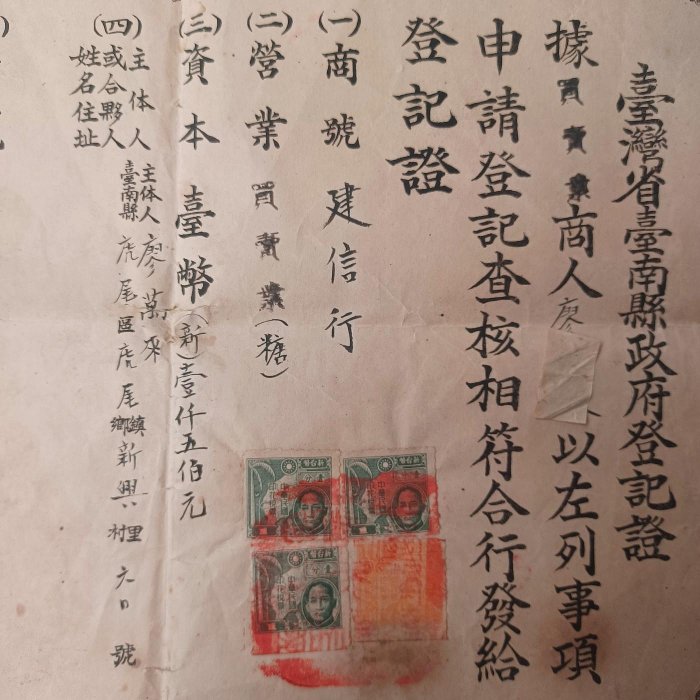 臺灣省臺南縣政府登記證
據買賣業商人廖 以左列事項
申請登記查核相符合行發給
登記證
(一)商號 建信行
(二)營業 買賣業(糖)
(三)資本 臺幣(新)壹仟五佰元
(四)主体人或合夥人姓名住址
主体人 廖萬來
臺南縣虎尾區虎尾鄉鎮新興村里 號